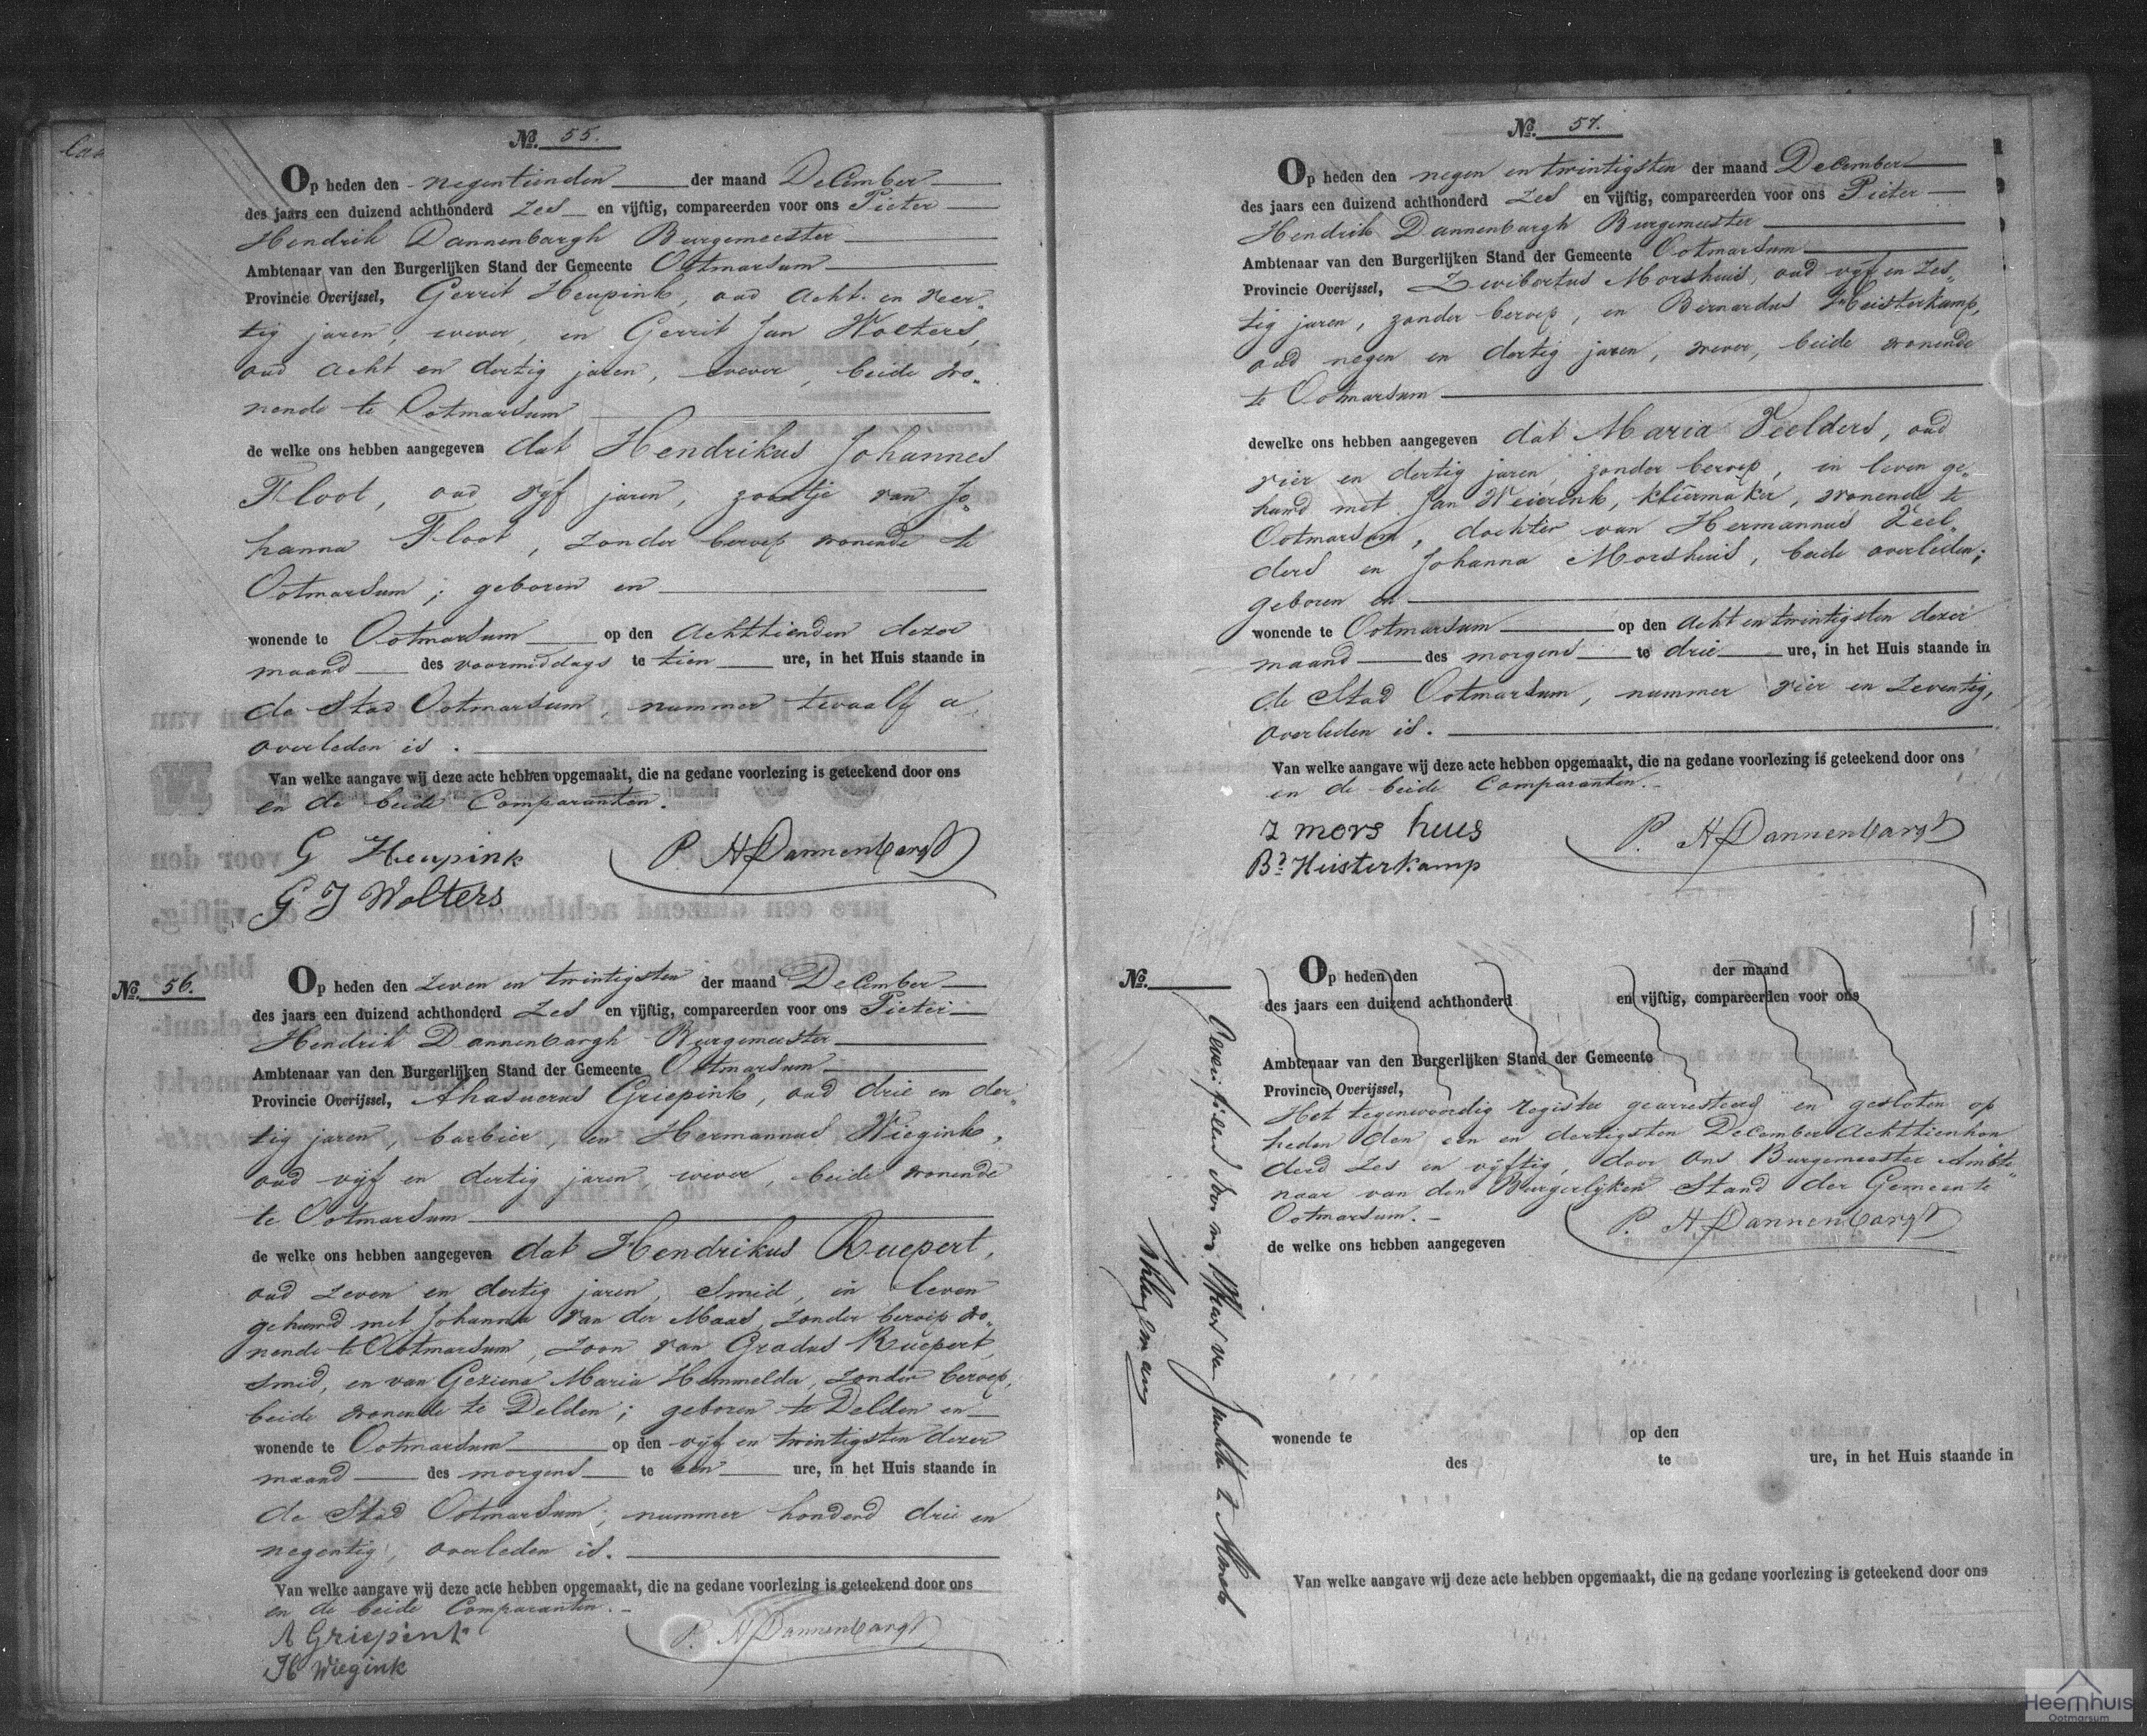 No. 55.
Op heden den negentienden der maand December
des jaars een duizend achthonderd zes en vijftig, compareerden voor ons Pieter
Hendrik Dannenbargh Burgemeester
Ambtenaar van den Burgerlijken Stand der Gemeente Ootmarsum
Provincie Overijssel, Gerrit Heupink, oud acht en veer„
tig jaren, wever, en Gerrit Jan Wolters,
oud acht en dertig jaren, wever, beide wo„
nende te Ootmarsum
de welke ons hebben aangegeven dat Hendrikus Johannes
Floot, oud vijf jaren, zoontje van Jo„
hanna Floot, zonder beroep wonende te
Ootmarsum; geboren en
wonende te Ootmarsum op den achttienden dezer
maand des voormiddags te tien ure, in het Huis staande in
de Stad Ootmarsum, nummer twaalf a,
overleden is.
Van welke aangave wij deze acte hebben opgemaakt, die na gedane voorlezing is geteekend door ons
en de beide Comparanten.
G Heupink
P. H Dannenbargh
G J Wolters
No. 56.
Op heden den zeven en twintigsten der maand December
des jaars een duizend achthonderd zes en vijftig, compareerden voor ons Pieter
Hendrik Dannenbargh Burgemeester
Ambtenaar van den Burgerlijken Stand der Gemeente Ootmarsum
Provincie Overijssel, Ahasuerus Griepink, oud drie en der„
tig jaren, barbier, en Hermannus Wiegink,
oud vijf en dertig jaren, wever, beide wonende
te Ootmarsum
de welke ons hebben aangegeven dat Hendrikus Ruepert,
oud zeven en dertig jaren, Smid, in leven
gehuwd met Johanna van der Maas, zonder beroep wo„
nende te Ootmarsum, zoon van Gradus Ruepert,
Smid, en van Geziena Maria Hemmelder, zonder beroep,
beide wonende te Delden; geboren te Delden en
wonende te Ootmarsum op den vijf en twintigsten dezer
maand des morgens te een ure, in het Huis staande in
de Stad Ootmarsum, nummer honderd drie en
negentig, overleden is.
Van welke aangave wij deze acte hebben opgemaakt, die na gedane voorlezing is geteekend door ons
en de beide Comparanten.
A Griepink
P. H Dannenbargh
H Wiegink
No. 57.
Op heden den negen en twintigsten der maand December
des jaars een duizend achthonderd zes en vijftig, compareerden voor ons Pieter
Hendrik Dannenburgh Burgemeester
Ambtenaar van den Burgerlijken Stand der Gemeente Ootmarsum
Provincie Overijssel, Zwibertus Morshuis, oud vijf en zes„
tig jaren, zonder beroep, en Bernardus Heisterkamp,
oud negen en dertig jaren, wever, beide wonende
te Ootmarsum
dewelke ons hebben aangegeven dat Maria Veelders, oud
vier en dertig jaren, zonder beroep, in leven ge„
huwd met Jan Weierink, kleermaker, wonende te
Ootmarsum, dochter van Hermannus Veel„
ders en Johanna Morshuis, beide overleden;
geboren en
wonende te Ootmarsum op den acht en twintigsten dezer
maand des morgens te drie ure, in het Huis staande in
de Stad Ootmarsum, nummer vier en zeventig,
overleden is.
Van welke aangave wij deze acte hebben opgemaakt, die na gedane voorlezing is geteekend door ons
en de beide Comparanten.
Z mors huus
P. H Dannenbargh
Bd Heisterkamp
No.
Op heden den der maand
des jaars een duizend achthonderd en vijftig, compareerden voor ons
Ambtenaar van den Burgerlijken Stand der Gemeente
Provincie Overijssel,
Het tegenwoordig register gearresteerd en gesloten op
heden den een en dertigsten December achttienhon„
derd zes en vijftig, door ons Burgemeester Ambte„
naar van den Burgerlijken Stand der Gemeente
Ootmarsum.
P. H Dannenbargh
de welke ons hebben aangegeven
wonende te op den
des te ure, in het Huis staande in
Van welke aangave wij deze acte hebben opgemaakt, die na gedane voorlezing is geteekend door ons
Heemhuis
Ootmarsum